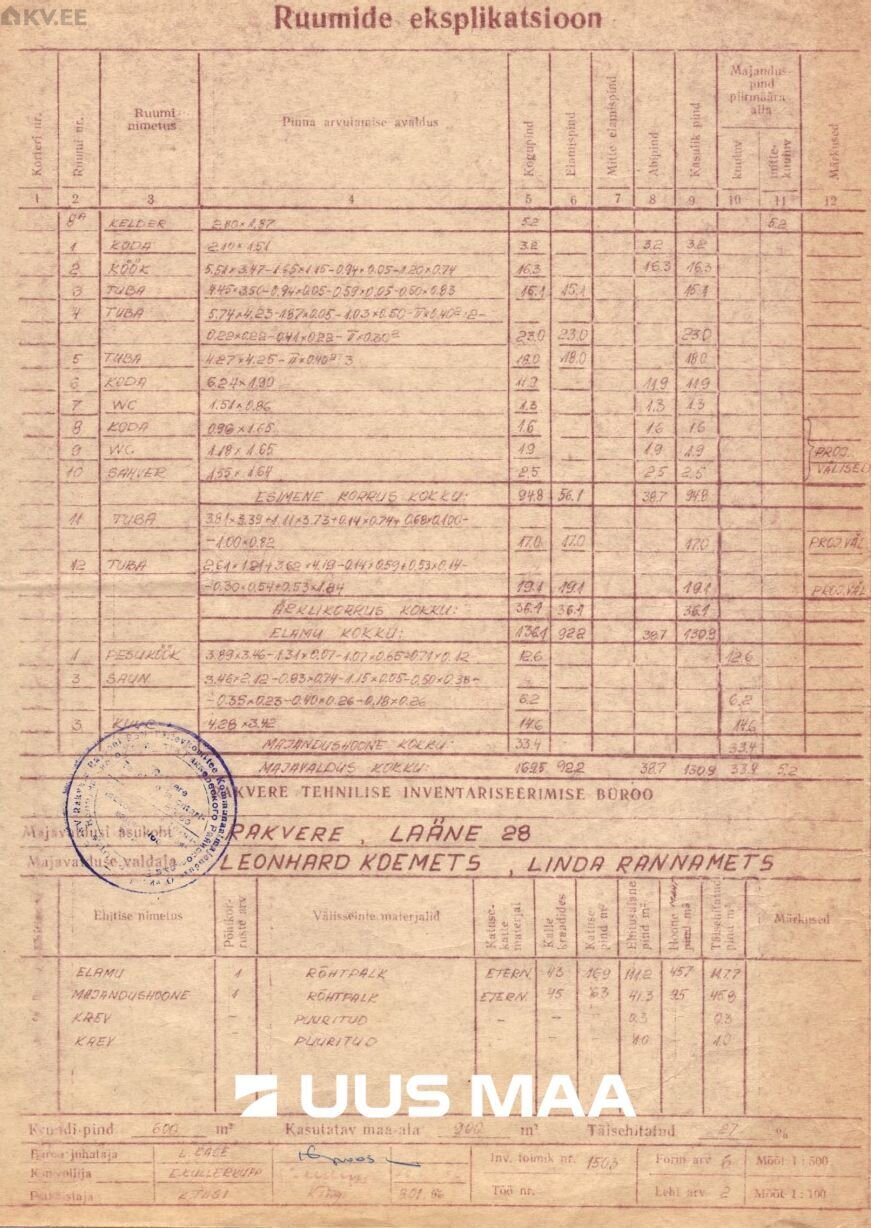 KV.EE
Ruumide eksplikatsioon
Korteri nr. Ruumi nr. Ruumi nimetus Pinna arvutamise avaldus Kogupind Elamispind Mitte elamispind Abipind Kasulik pind Majanduspind piirmäära alla kuuluv mittekuuluv Märkused
1 2 3 4 5 6 7 8 9 10 11 12
KELDER 2.80×1.87 5.2 5.2
1 KODA 2.10×1.51 3.2 3.2 3.2
2 KÖÖK 5.51×3.47-1.65×1.15-0.94×0.05-1.20×0.74 16.3 16.3 16.3
3 TUBA 4.45×3.50-0.94×0.05-0.59×0.05-0.50×0.83 15.1 15.1 15.1
4 TUBA 5.74×4.23-1.87×0.05-1.03×0.50-π×0.40²:2-
0.22×0.22-0.41×0.22-π×0.30² 23.0 23.0 23.0
5 TUBA 4.27×4.25-π×0.40²:3 18.0 18.0 18.0
6 KODA 6.24×1.90 11.9 11.9 11.9
7 WC 1.51×0.86 1.3 1.3 1.3
8 KODA 0.96×1.65 1.6 1.6 1.6
9 WC 1.18×1.65 1.9 1.9 1.9 PROJ.
10 SAHVER 1.55×1.64 2.5 2.5 2.5 VÄLISELT
ESIMENE KORRUS KOKKU: 94.8 56.1 38.7 94.8
11 TUBA 3.81×3.39+1.11×3.73+0.14×0.74+0.68×0.100-
-1.00×0.82 17.0 17.0 17.0 PROJ.VÄL.
12 TUBA 2.61×1.21+3.62×4.19-0.14×0.59+0.53×0.14-
-0.30×0.54+0.53×1.84 19.1 19.1 19.1 PROJ.VÄL
ÄRKLIKORRUS KOKKU: 36.1 36.1 36.1
ELAMU KOKKU: 136.1 92.2 38.7 130.9
1 PESUKÖÖK 3.89×3.46-1.31×0.07-1.07×0.65-0.71×0.12 12.6 12.6
3 SAUN 3.46×2.12-0.83×0.74-1.15×0.05-0.50×0.38-
-0.35×0.23-0.40×0.26-0.18×0.26 6.2 6.2
3 KUUR 4.28×3.42 14.6 14.6
MAJANDUSHOONE KOKKU: 33.4 33.4
MAJAVALDUS KOKKU: 169.5 92.2 38.7 130.9 33.4 5.2
RAKVERE TEHNILISE INVENTARISEERIMISE BÜROO
Majavaldusi asukoht RAKVERE, LÄÄNE 28
Majavalduse valdaja LEONHARD KOEMETS, LINDA RANNAMETS
Ehitise nimetus Põhikorruste arv Välisseinte materjalid Katusekatte materjal Kalle kraadides Katuse pind m² Ehitusalune pind m² Hoone maht m³ Täisehitatud pind m² Märkused
ELAMU 1 RÕHTPALK ETERN. 43 169 111.2 457 117.7
MAJANDUSHOONE 1 RÕHTPALK ETERN. 45 63 41.3 95 45.9
KAEV - PUURITUD - - 0.3 0.3
KAEV - PUURITUD - - 1.0 1.0
UUS MAA
Krundi pind 600 m² Kasutatav maa-ala 900 m² Täisehitatud 27 %
Büroo juhataja Inv. toimik nr. 1503 Form arv 6 Mõõt 1:500
Kontrollija
Töö nr. Leht arv 2 Mõõt 1:100